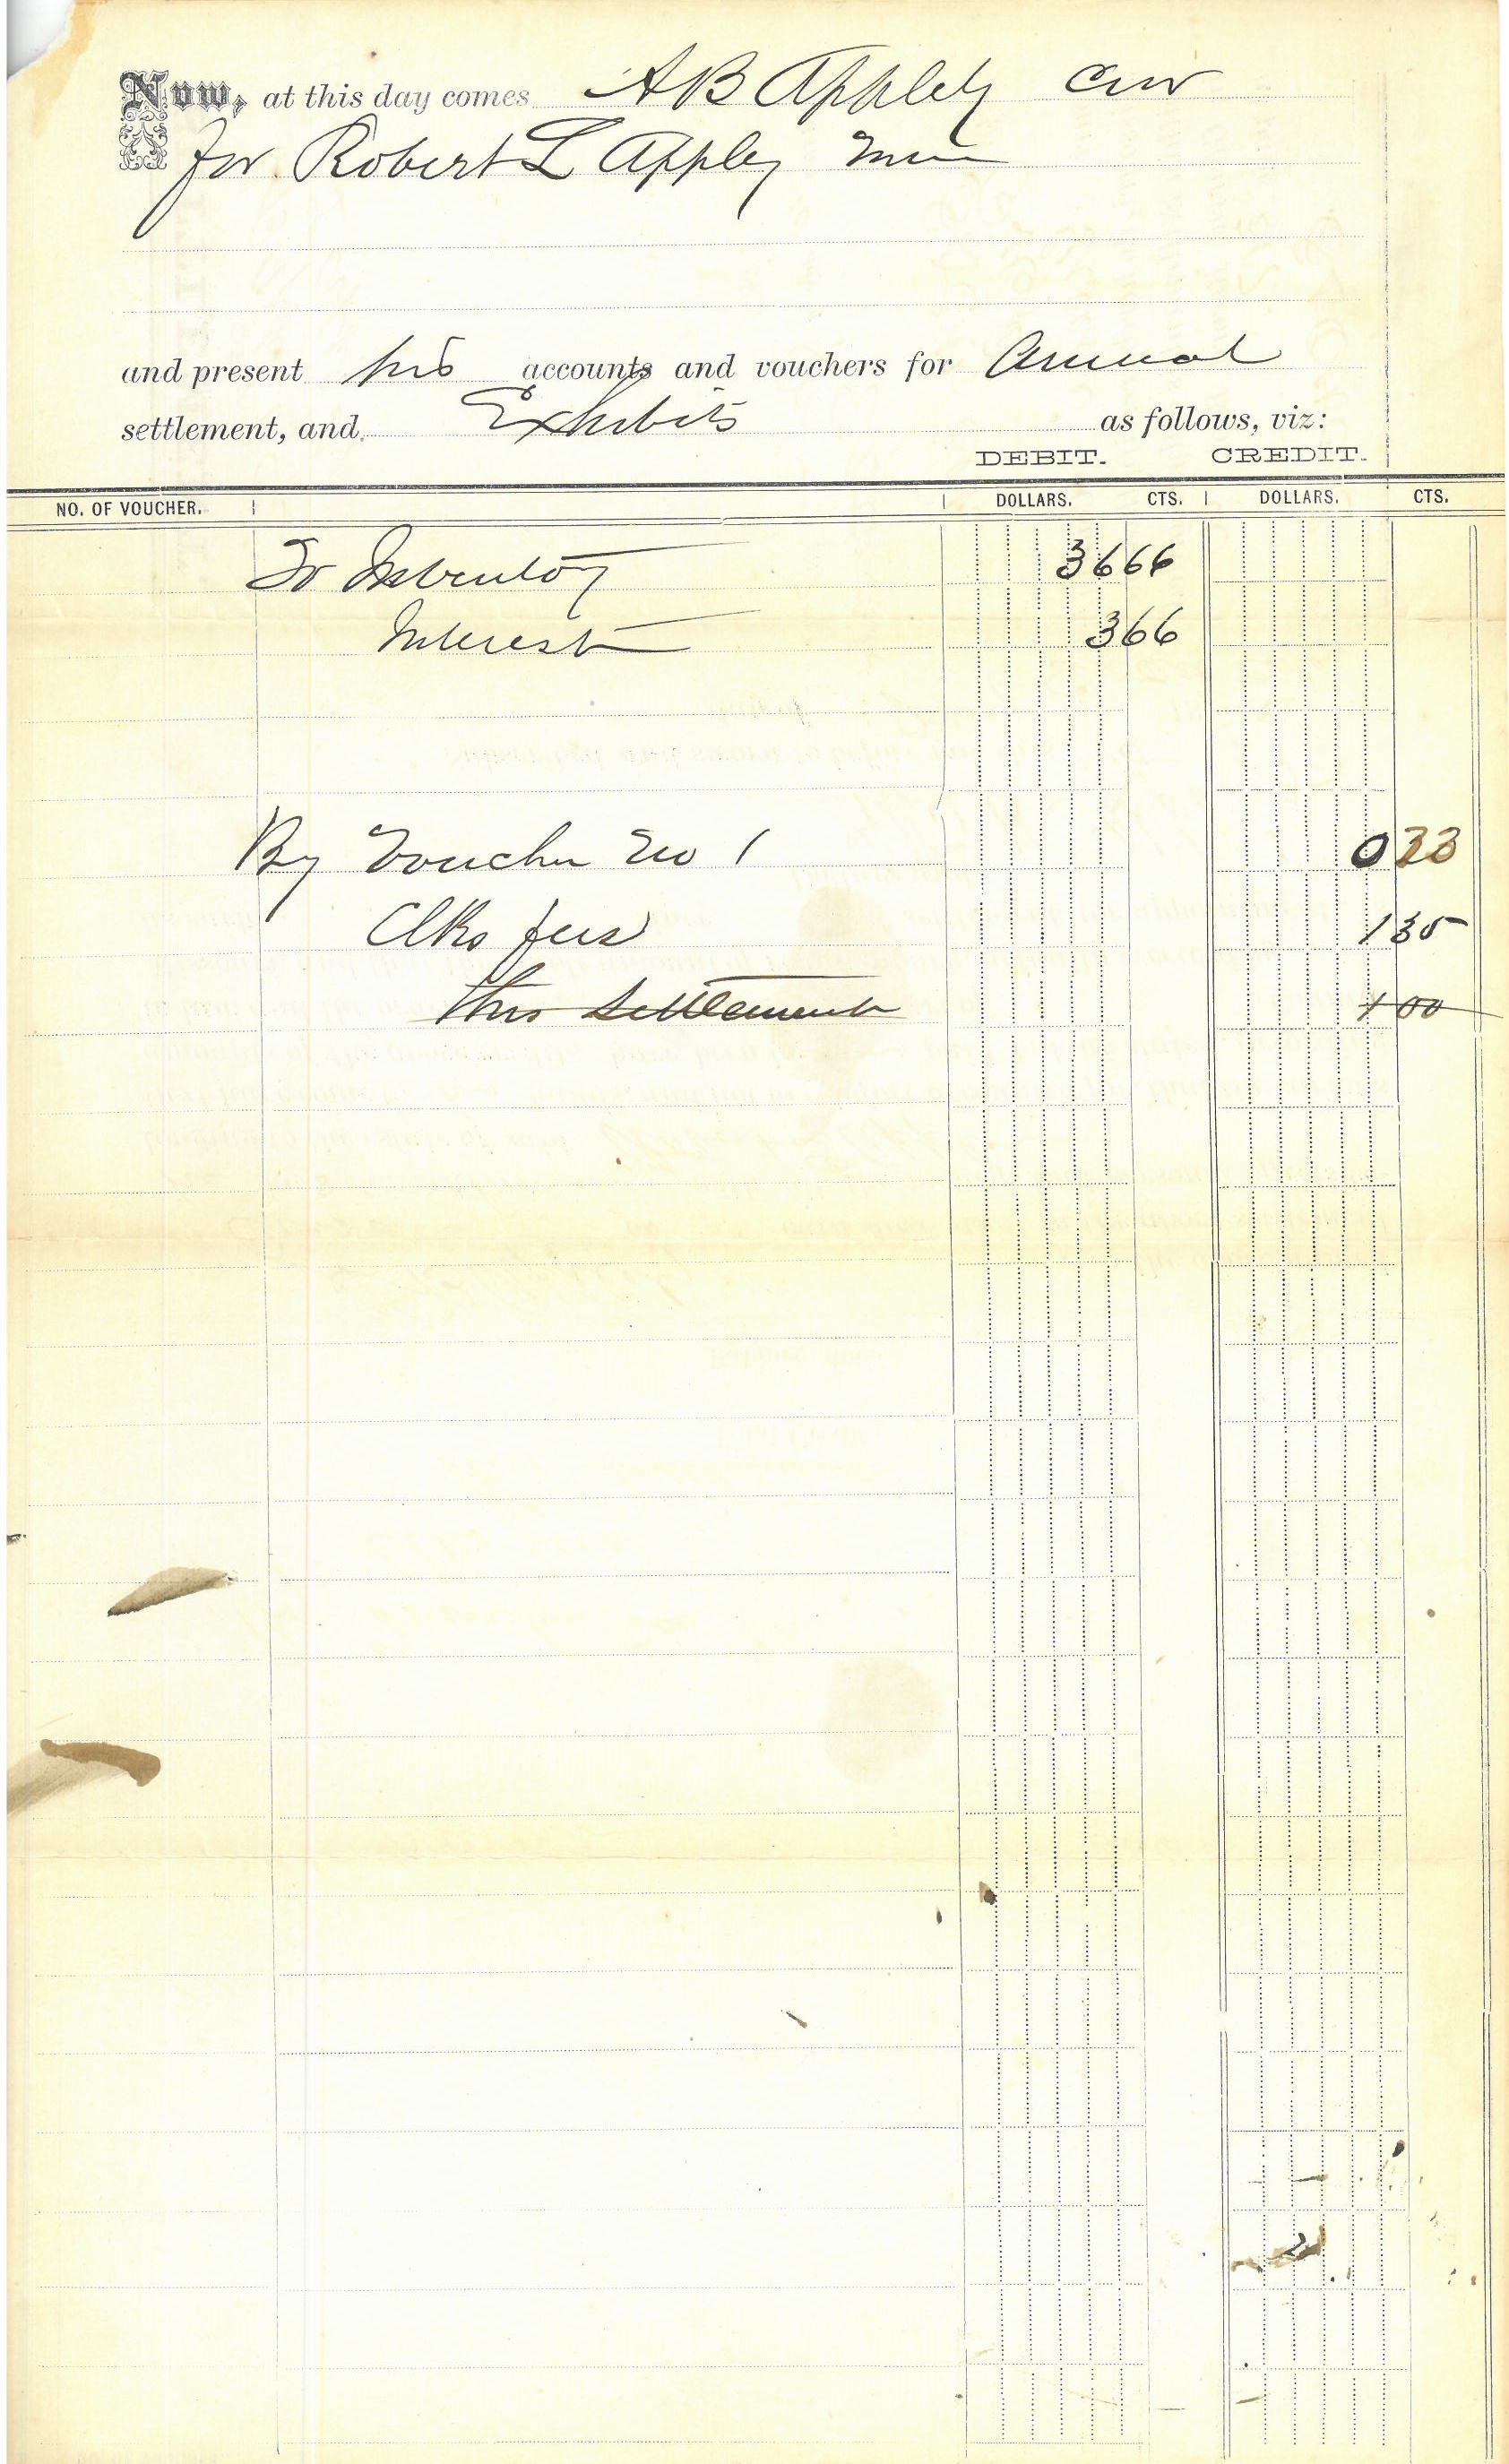 Now, at this day comes A B Appley Cur
for Robert L Appley Min
and present his accounts and vouchers for Annual
settlement, and Exhibits as follows, viz:
DEBIT. CREDIT.
NO. OF VOUCHER. DOLLARS. CTS. DOLLARS. CTS.
To Inventory 36 66
Interest 3 66
By Voucher No 1 0 33
Clks fees 1 35
this Settlement 1 00